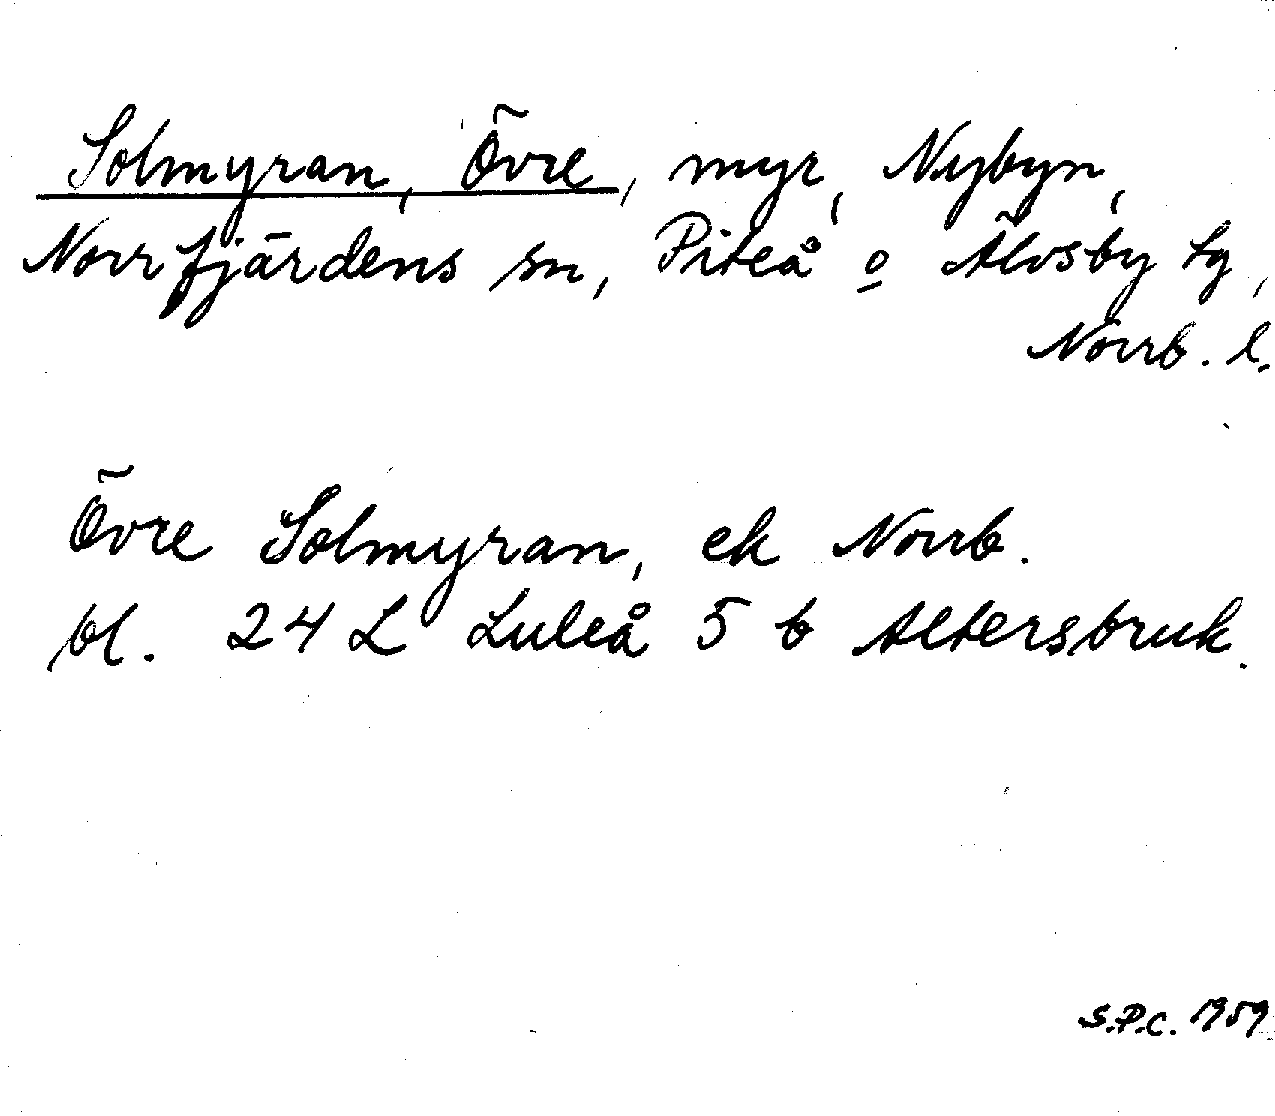 Solmyran, Övre, myr, Nybyn,
Norrfjärdens sn, Piteå o Älvsby tg,
Norrb. l.
Övre Solmyran, ek Norrb.
bl. 24 L Luleå 5 b Altersbruk.
S.P.C. 1959